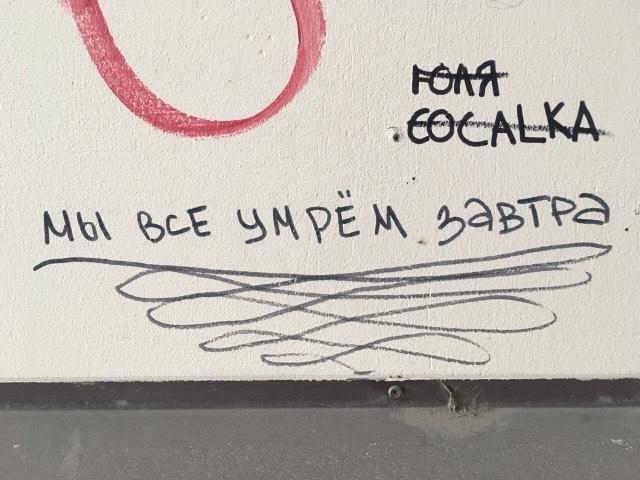 ЮЛЯ
СОСАLКА
МЫ ВСЕ УМРЁМ ЗАВТРА